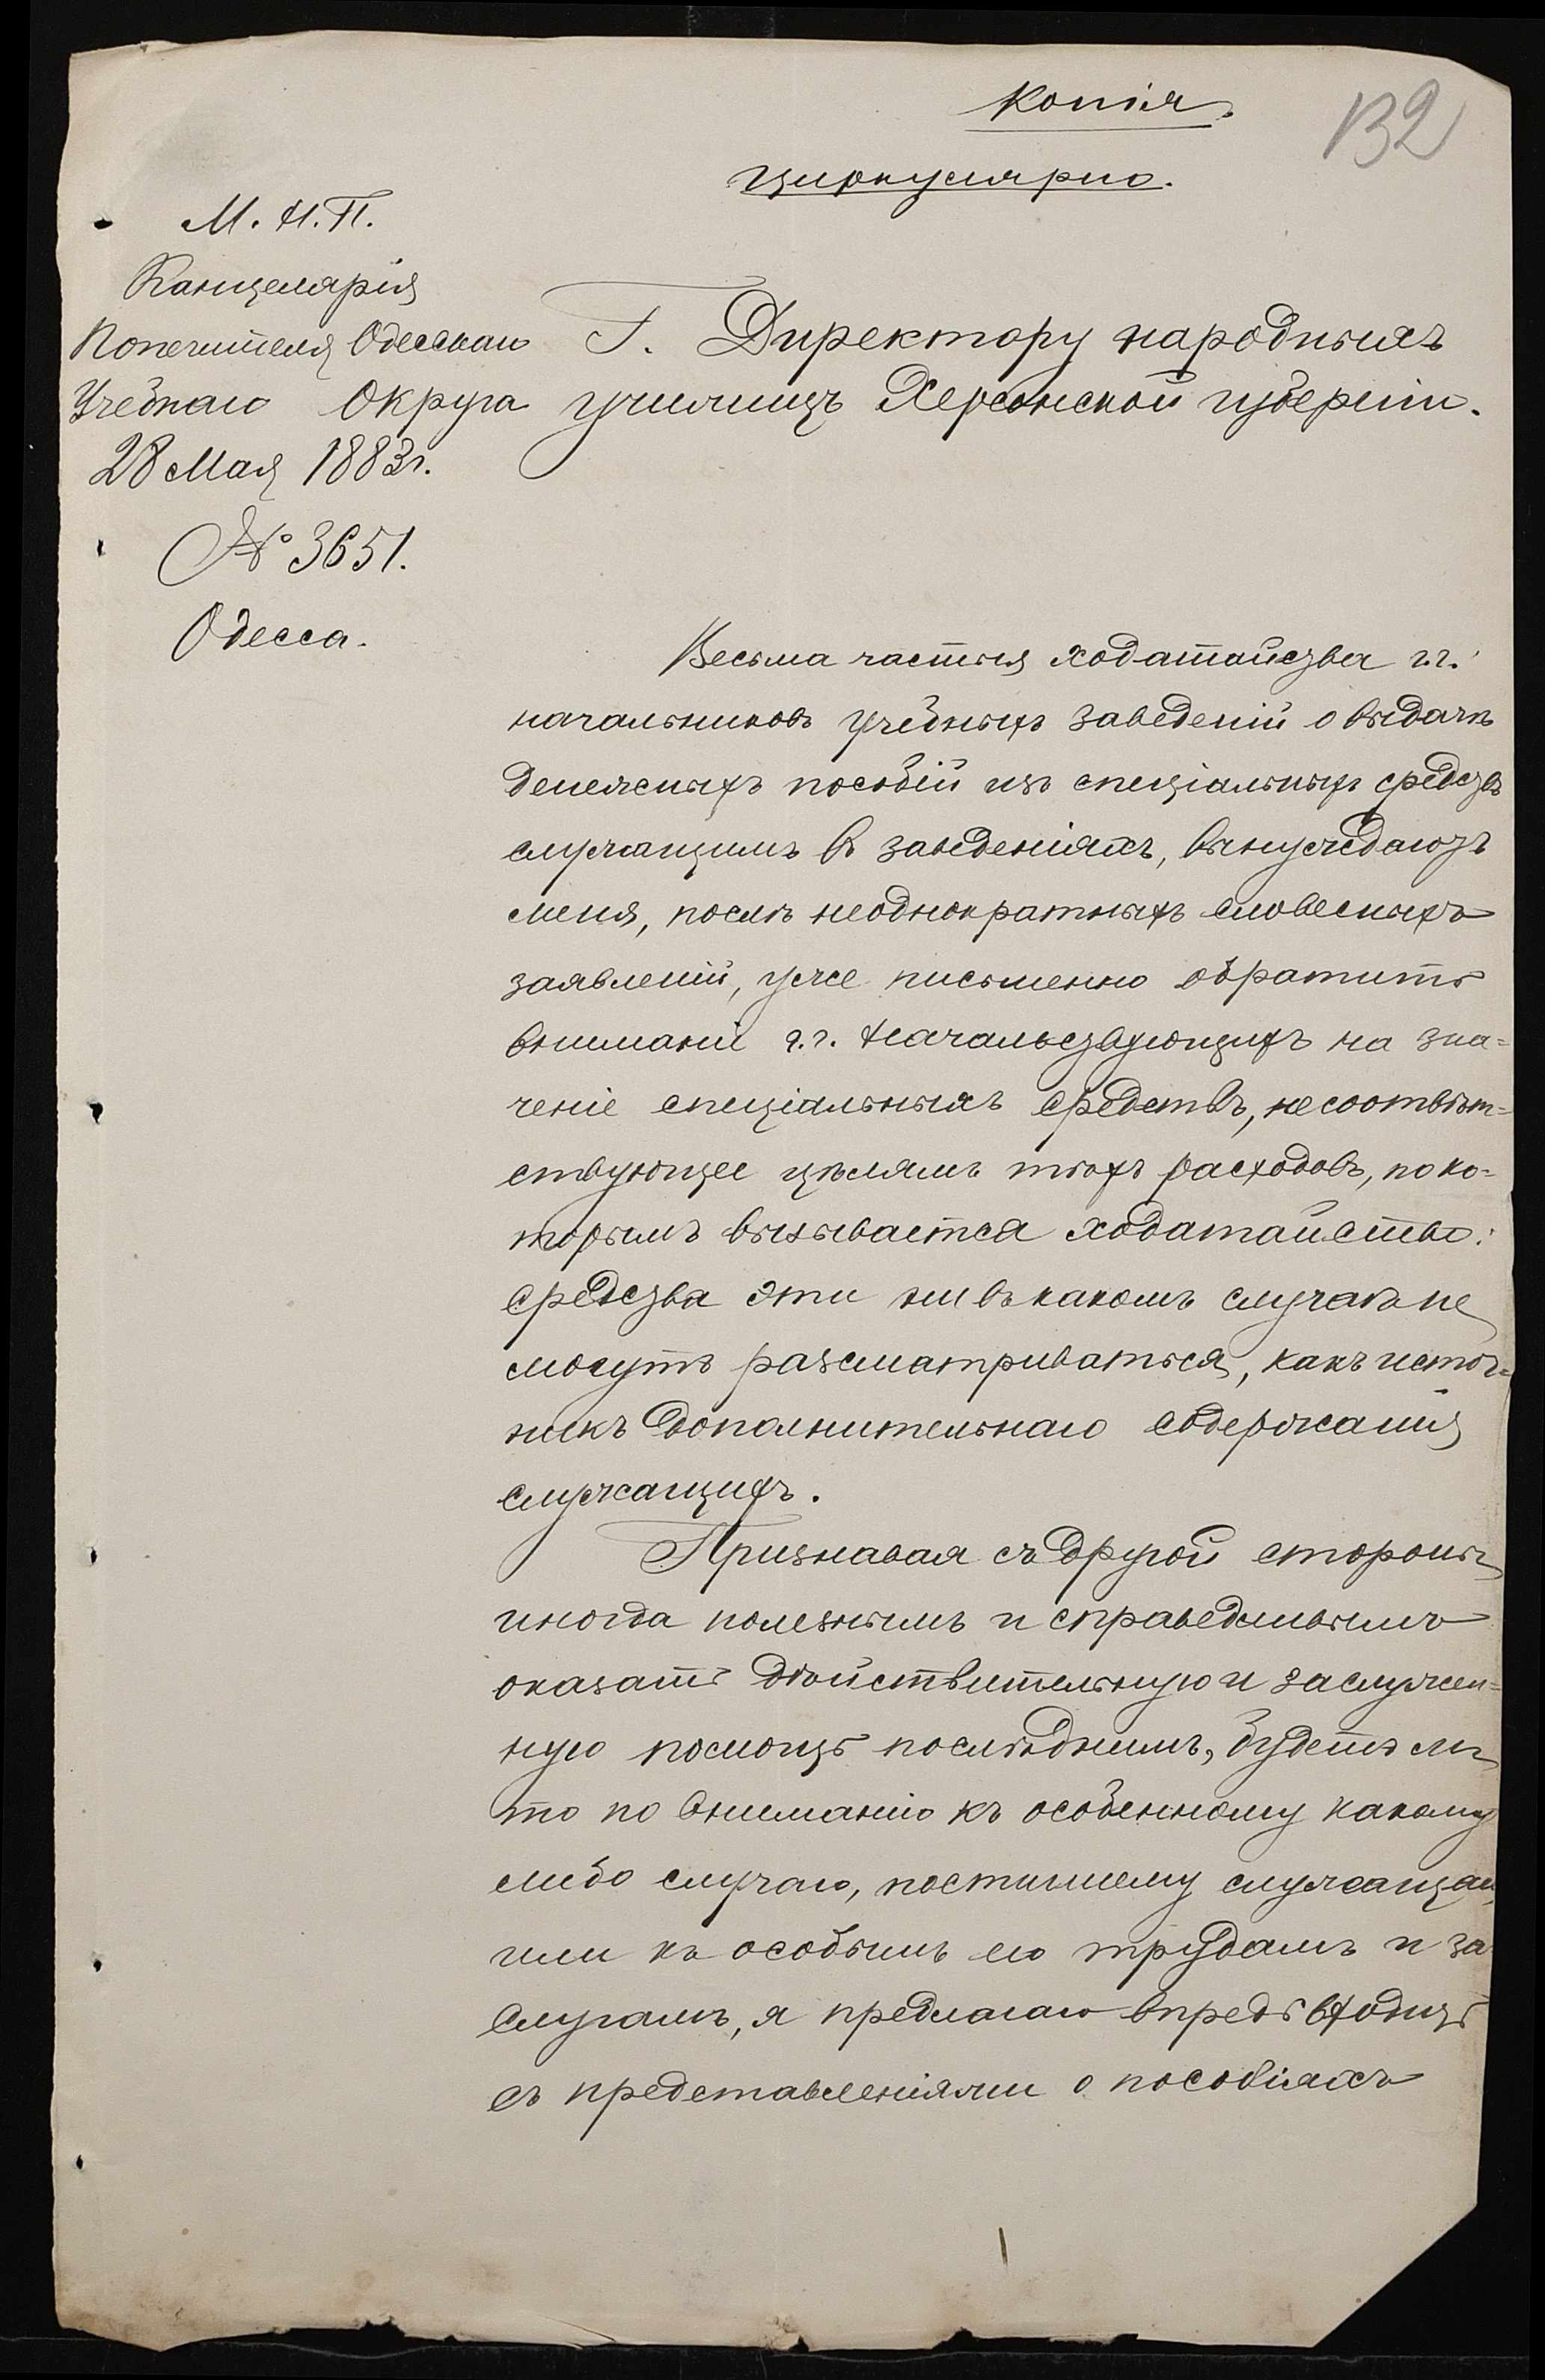 Копія
132
Циркулярно.
М. Н. П.
Канцелярія
Попечителя Одесскаго
Учебнаго Округа
28 Мая 1883 г.
№ 3651.
Одесса.
Г. Директору народныхъ
училищъ Херсонской губерніи.
Весьма частыя ходатайства г.г.
начальниковъ учебныхъ заведеній о выдачѣ
денежныхъ пособій изъ спеціальныхъ средствъ
служащимъ въ заведеніяхъ, вынуждаютъ
меня, послѣ неоднократныхъ словесныхъ
заявленій, уже письменно обратить
вниманіе г.г. Начальствующихъ на зна=
ченіе спеціальныхъ средствъ, несоотвѣт=
ствующее цѣлямъ тѣхъ расходовъ, по ко=
торымъ вызывается ходатайство:
средства эти ни въ какомъ случаѣ не
могутъ разсматриваться, какъ источ=
никъ дополнительнаго содержанія
служащихъ.
Признавая съ другой стороны
иногда полезнымъ и справедливымъ
оказать дѣйствительную и заслужен=
ную помощь послѣднимъ, будетъ ли
то по вниманію къ особенному какому
либо случаю, постигшему служащаго,
или къ особымъ его трудамъ и за
слугамъ, я предлагаю впредь входить
съ представленіями о пособіяхъ